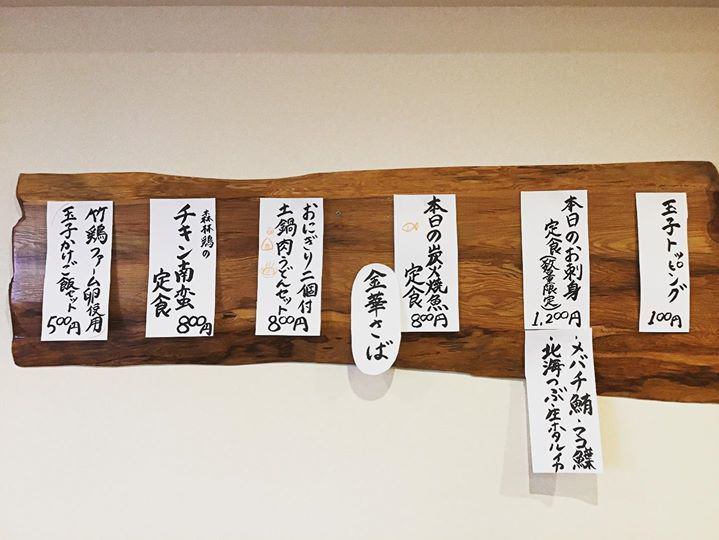 玉子トッピング
100円
本日のお刺身
定食(数量限定)
1,200円
・メバチ鮪・マコ鰈
・北海つぶ・生ホタルイカ
本日の炭火焼魚
定食
800円
金華さば
おにぎり二個付
土鍋肉うどんセット
800円
森林鶏の
チキン南蛮
定食
800円
竹鶏ファーム卵使用
玉子かけご飯セット
500円